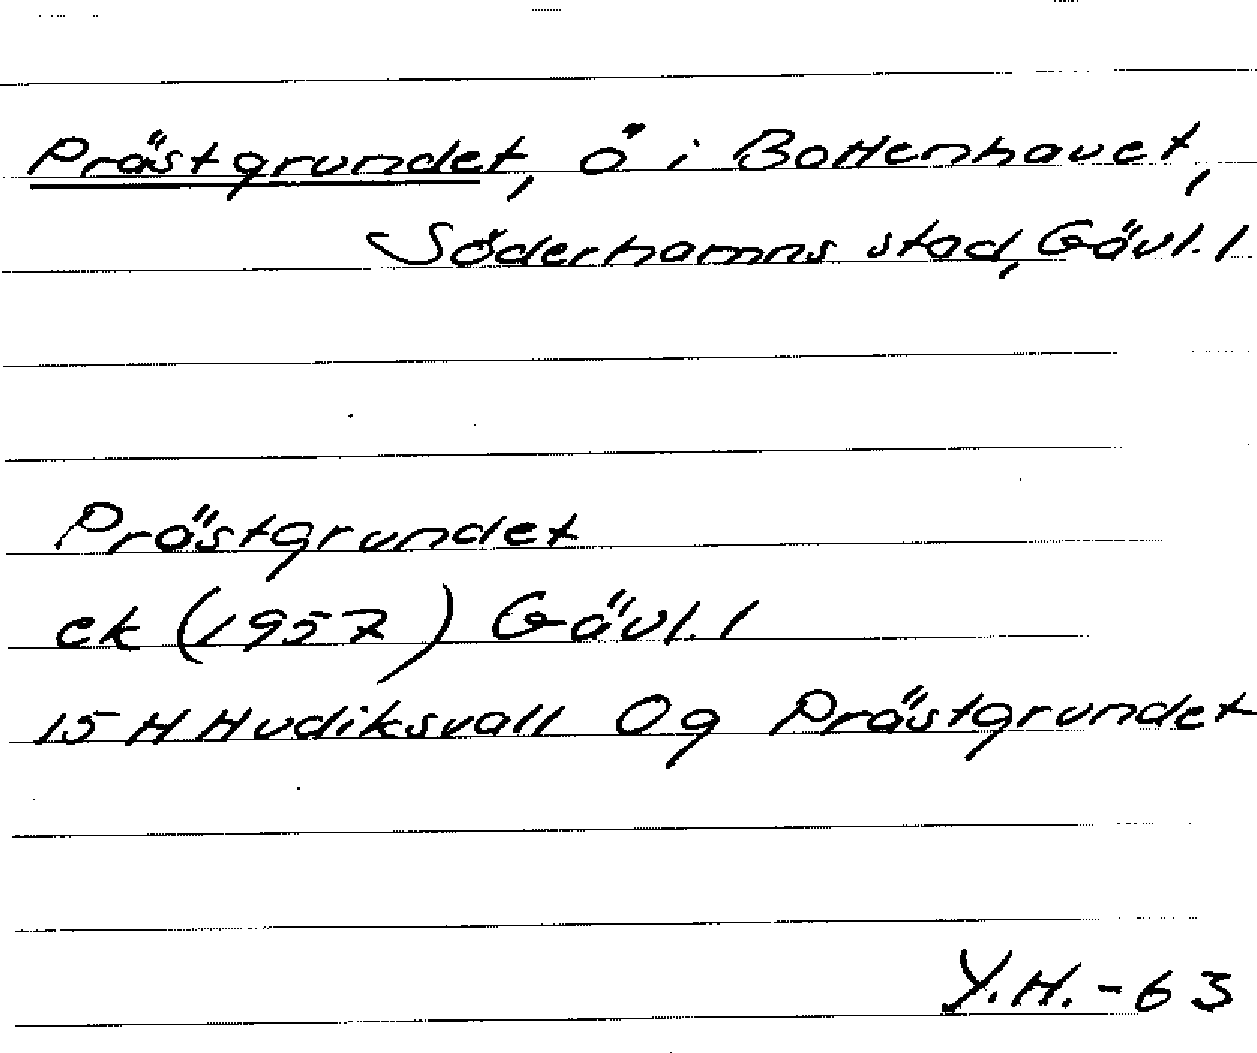 Prästgrundet, ö i Bottenhavet,
Söderhamns stad, Gävl. l
Prästgrundet
ek (1957) Gävl. l
15 H Hudiksvall 0g Prästgrundet
Y.H. -63